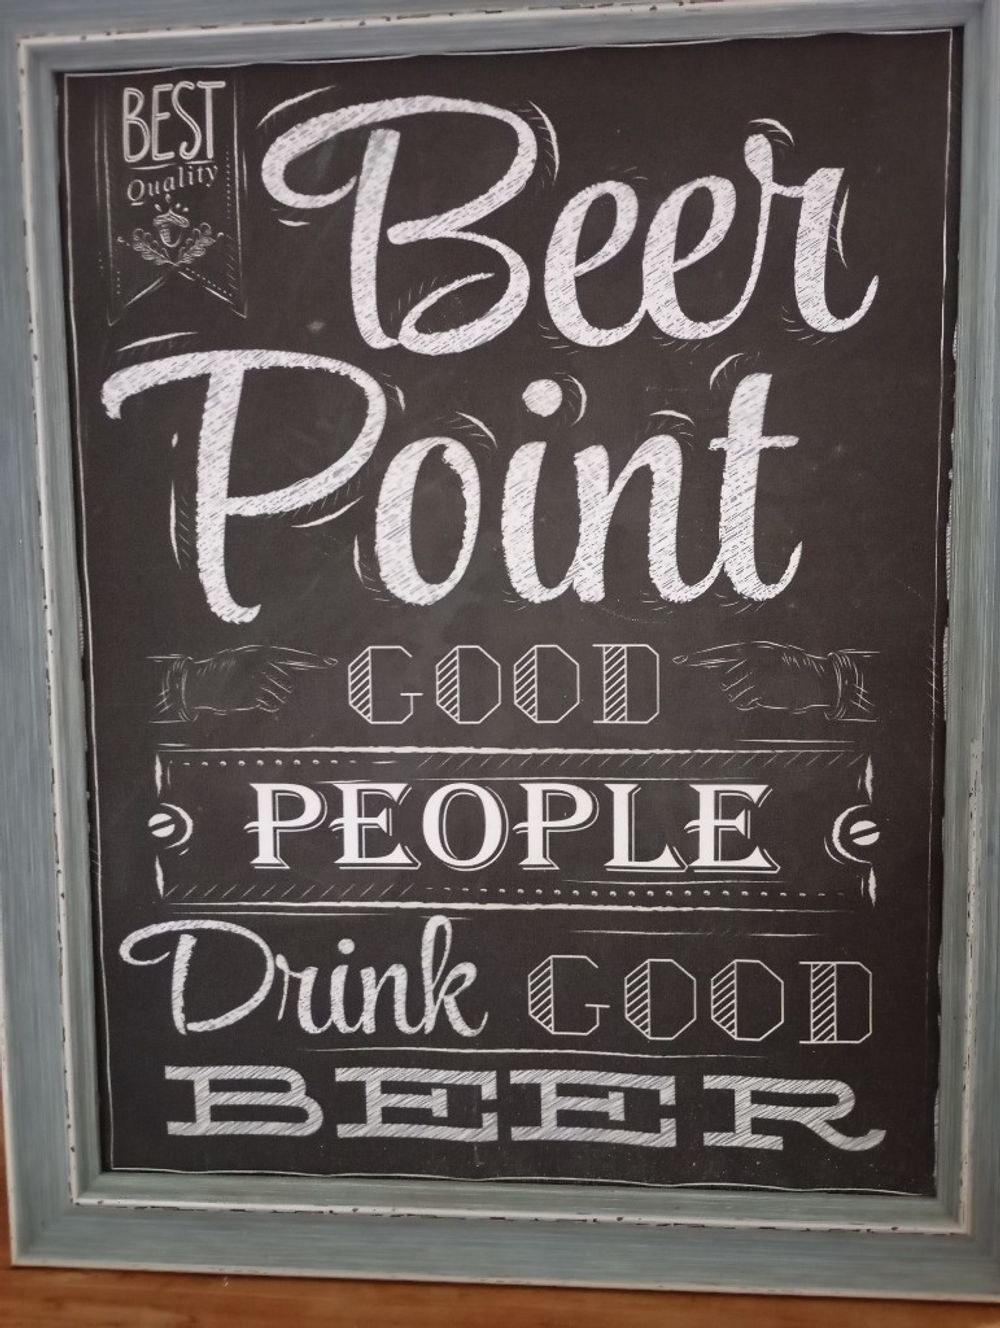 BEST
Quality
Beer
Point
GOOD
PEOPLE
Drink GOOD
BEER